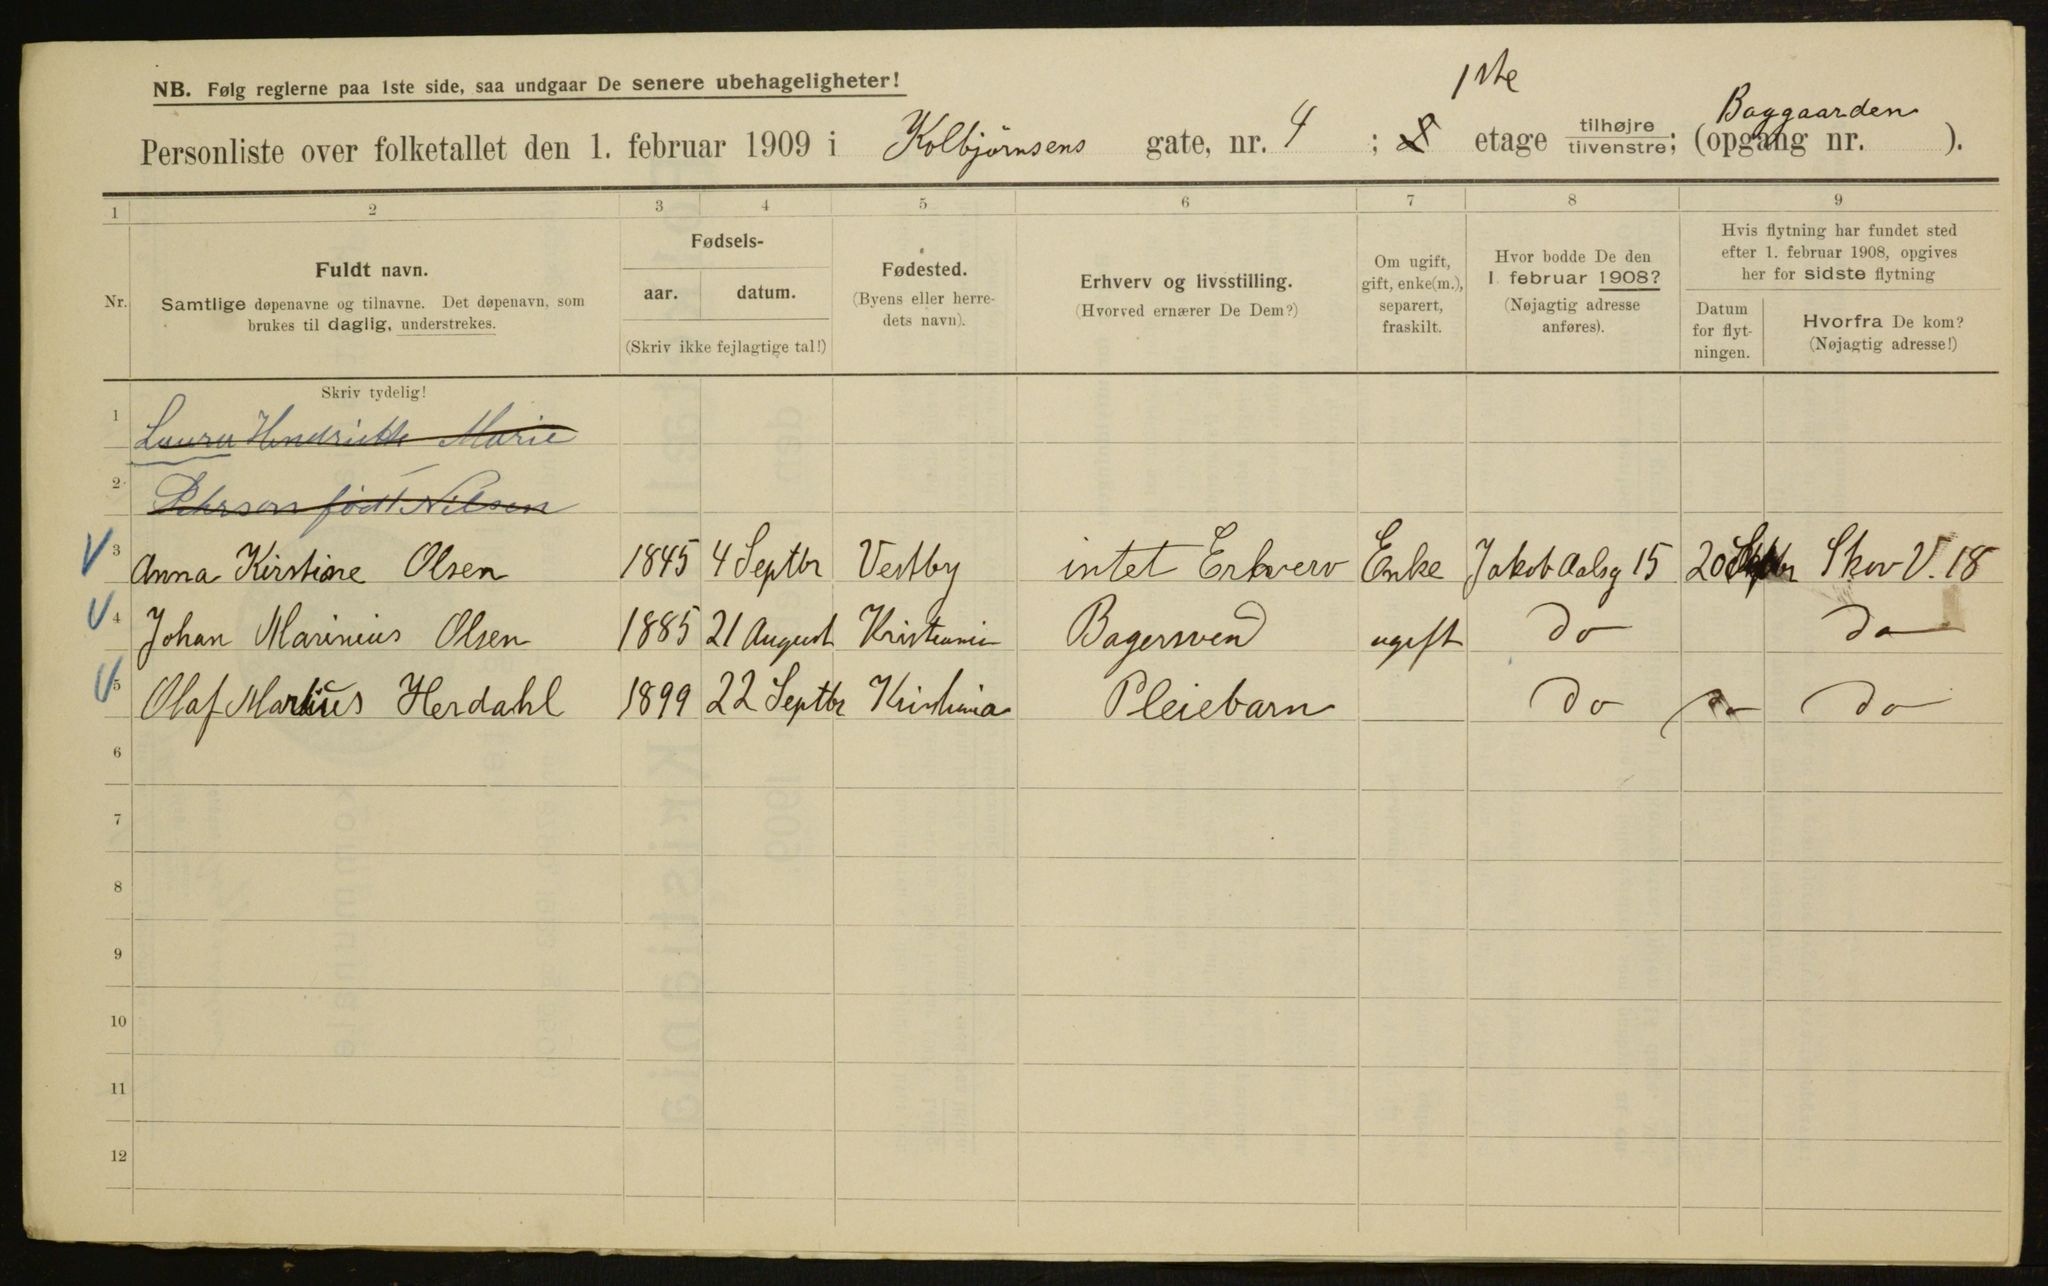 NB. Følg reglerne paa 1ste side, saa undgaar De senere ubehageligheter!
1ste
Baggaarden
Personliste over folketallet den 1. februar 1909 i Kolbjørnsens gate, nr. 4 ; etage tilhøjre tilvenstre; (opgang nr. ).
1 2 3 4 5 6 7 8 9
Nr.
Fuldt navn.
Samtlige døpenavne og tilnavne. Det døpenavn, som
brukes til daglig, understrekes.
Fødsels-
aar. datum.
(Skriv ikke fejlagtige tal!)
Fødested.
(Byens eller herre-
dets navn).
Erhverv og livsstilling.
(Hvorved ernærer De Dem?)
Om ugift,
gift, enke(m.),
separert,
fraskilt.
Hvor bodde De den
1. februar 1908?
(Nøjagtig adresse
anføres).
Hvis flytning har fundet sted
efter 1. februar 1908, opgives
her for sidste flytning
Datum
for flyt-
ningen.
Hvorfra De kom?
(Nøjagtig adresse!)
Skriv tydelig!
1 Laura Hendrikke Marie
2 født Nilsen
V 3 Anna Kirstine Olsen 1845 4 Septbr Vestby intet Erhverv Enke Jakob Aalsg 15 20 Skov V. 18
V 4 Johan Marinius Olsen 1885 21 August Kristiania Bagersvend ugift do do
V 5 Olaf Marius Herdahl 1899 22 Septbr Kristiania Pleiebarn do do do
6
7
8
9
10
11
12